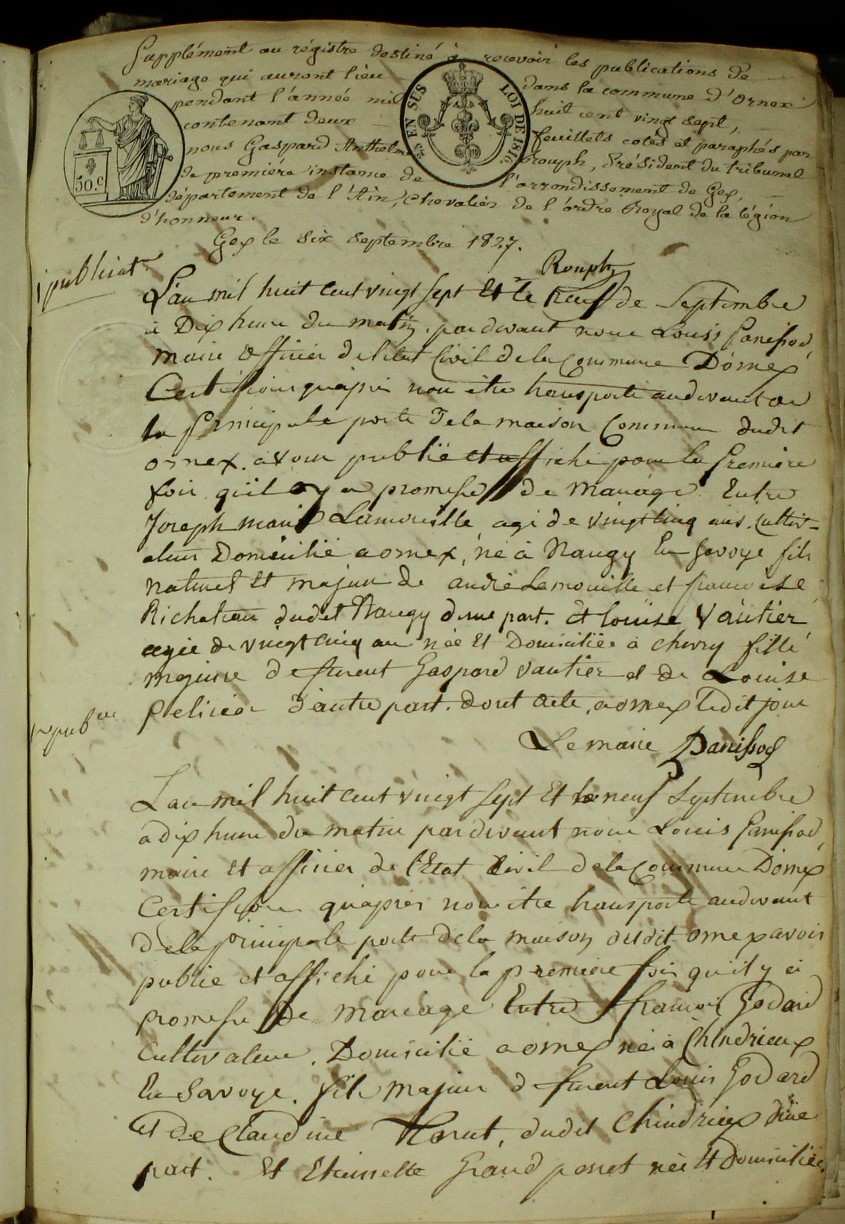 Supplément au régistre destiné à recevoir les publications de
mariage qui auront lieu dans la commune d'Ornex
pendant l'année mil huit cent vingt sept,
contenant deux feuillets cotés et paraphés par
nous Gaspard Anthelme Rouph, Président du tribunal
de première instance de l'arrondissement de Gex,
département de l'Ain, Chevalier de l'ordre Royal de la légion
d'honneur.
50.C
EN SUS LOI DE 1816
Gex le six septembre 1827.
Rouph
1 publicat
L'an mil huit cent vingt sept Et le neuf de Septembre
à Dix heure du matin, pardevant nous Louis Panissod,
maire officier de l'etat Civil de la Commune D'ornex
Certifions qu'après nous être transporté audevant de
la principale porte De la maison Commune dudit
ornex. avoir publié et affiché pour la premiere
fois qu'il y a promesse de Mariage Entre
Joseph marie Lamouille agé de vingt cinq ans, Cultiv-
ateur Domicilié a ornex, né à Nangy En Savoye fils
naturel Et majeur de andré Lamouille et francoise
dudit Nangy d'une part. Et louise Vautier
agée de vingt cinq an née Et Domiciliée à chevry fille
majeure de feu Gaspard vautier et de Louise
D'autre part. dont acte, a ornex Ledit jour
Le maire Panissod
L'an mil huit cent vingt sept Et le neuf Septembre
à dix heure du matin pardevant nous Louis Panissod,
maire Et officier de l'Etat Civil de la Commune D'ornex
Certifions qu'après nous être transporté audevant
de la principale porte de la maison dudit ornex avoir
publié et affiché pour la premiere fois qu'il y a
promesse de Mariage Entre francois Godard
Cultivateur, Domicilié a ornex né à Chindrieux
En Savoye. fils majeur de Louis Godard
Et de Claudine dudit Chindrieux d'une
part. Et Etiennette Grand née Et Domiciliée